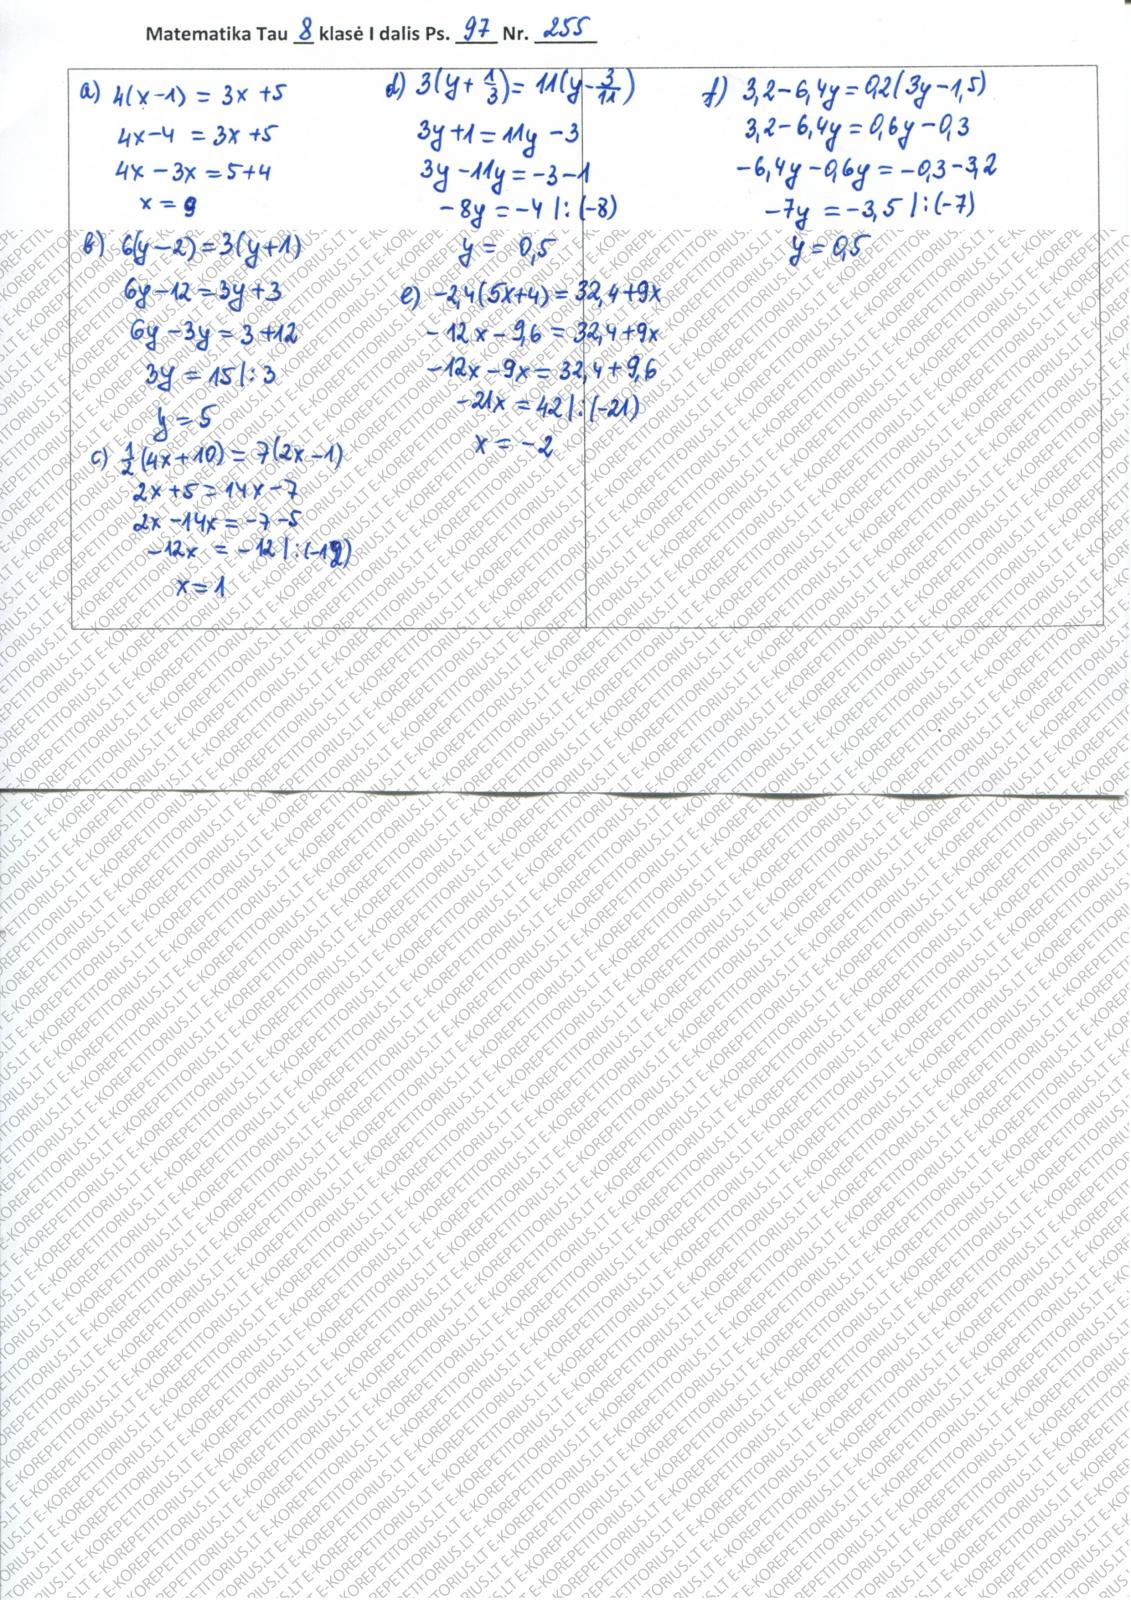 Matematika Tau 8 klasė I dalis Ps. 97 Nr. 255
a) 4(x-1) = 3x+5
4x-4 = 3x+5
4x-3x = 5+4
x = 9
b) 6(y-2) = 3(y+1)
6y-12 = 3y+3
6y-3y = 3+12
3y = 15 |: 3
y = 5
c) 1/2(4x+10) = 7(2x-1)
2x+5 = 14x-7
2x-14x = -7-5
-12x = -12 |:(-12)
x = 1
d) 3(y+1/3) = 11(y-3/11)
3y+1 = 11y-3
3y-11y = -3-1
-8y = -4 |:(-8)
y = 0,5
e) -2,4(5x+4) = 32,4+9x
-12x-9,6 = 32,4+9x
-12x-9x = 32,4+9,6
-21x = 42 |:(-21)
x = -2
f) 3,2-6,4y = 0,2(3y-1,5)
3,2-6,4y = 0,6y-0,3
-6,4y-0,6y = -0,3-3,2
-7y = -3,5 |:(-7)
y = 0,5
E-KOREPETITORIUS.LT